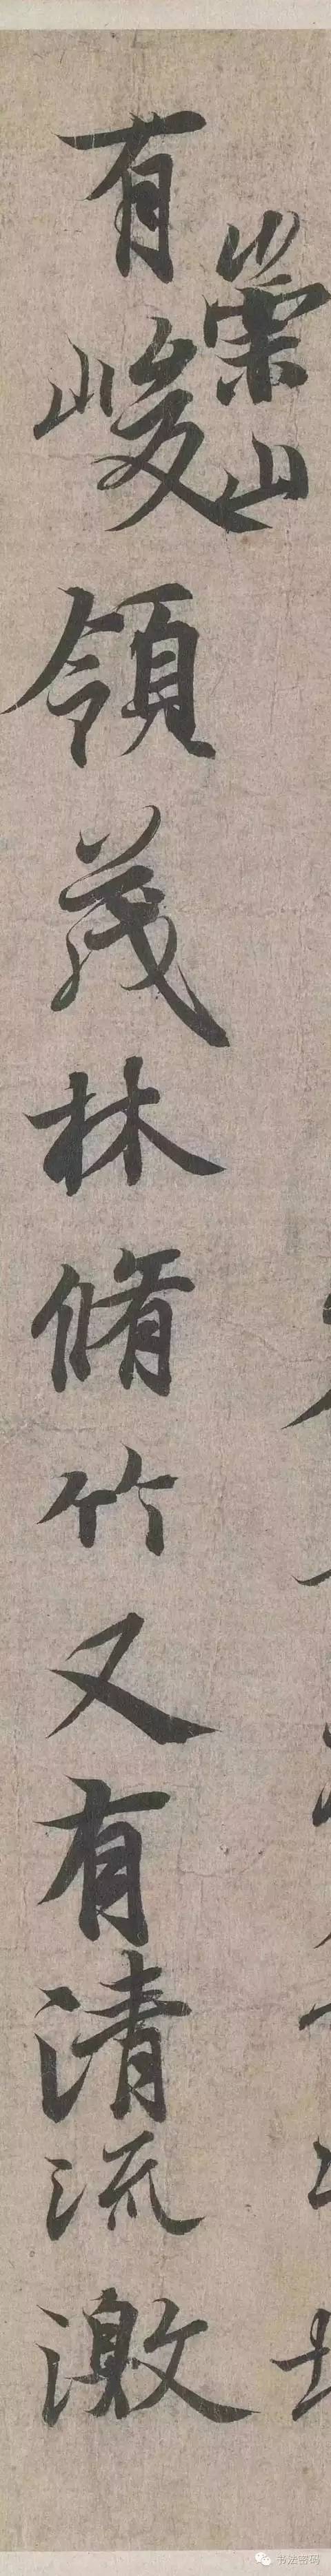 崇山
有峻領茂林脩竹又有清流激
书法密码